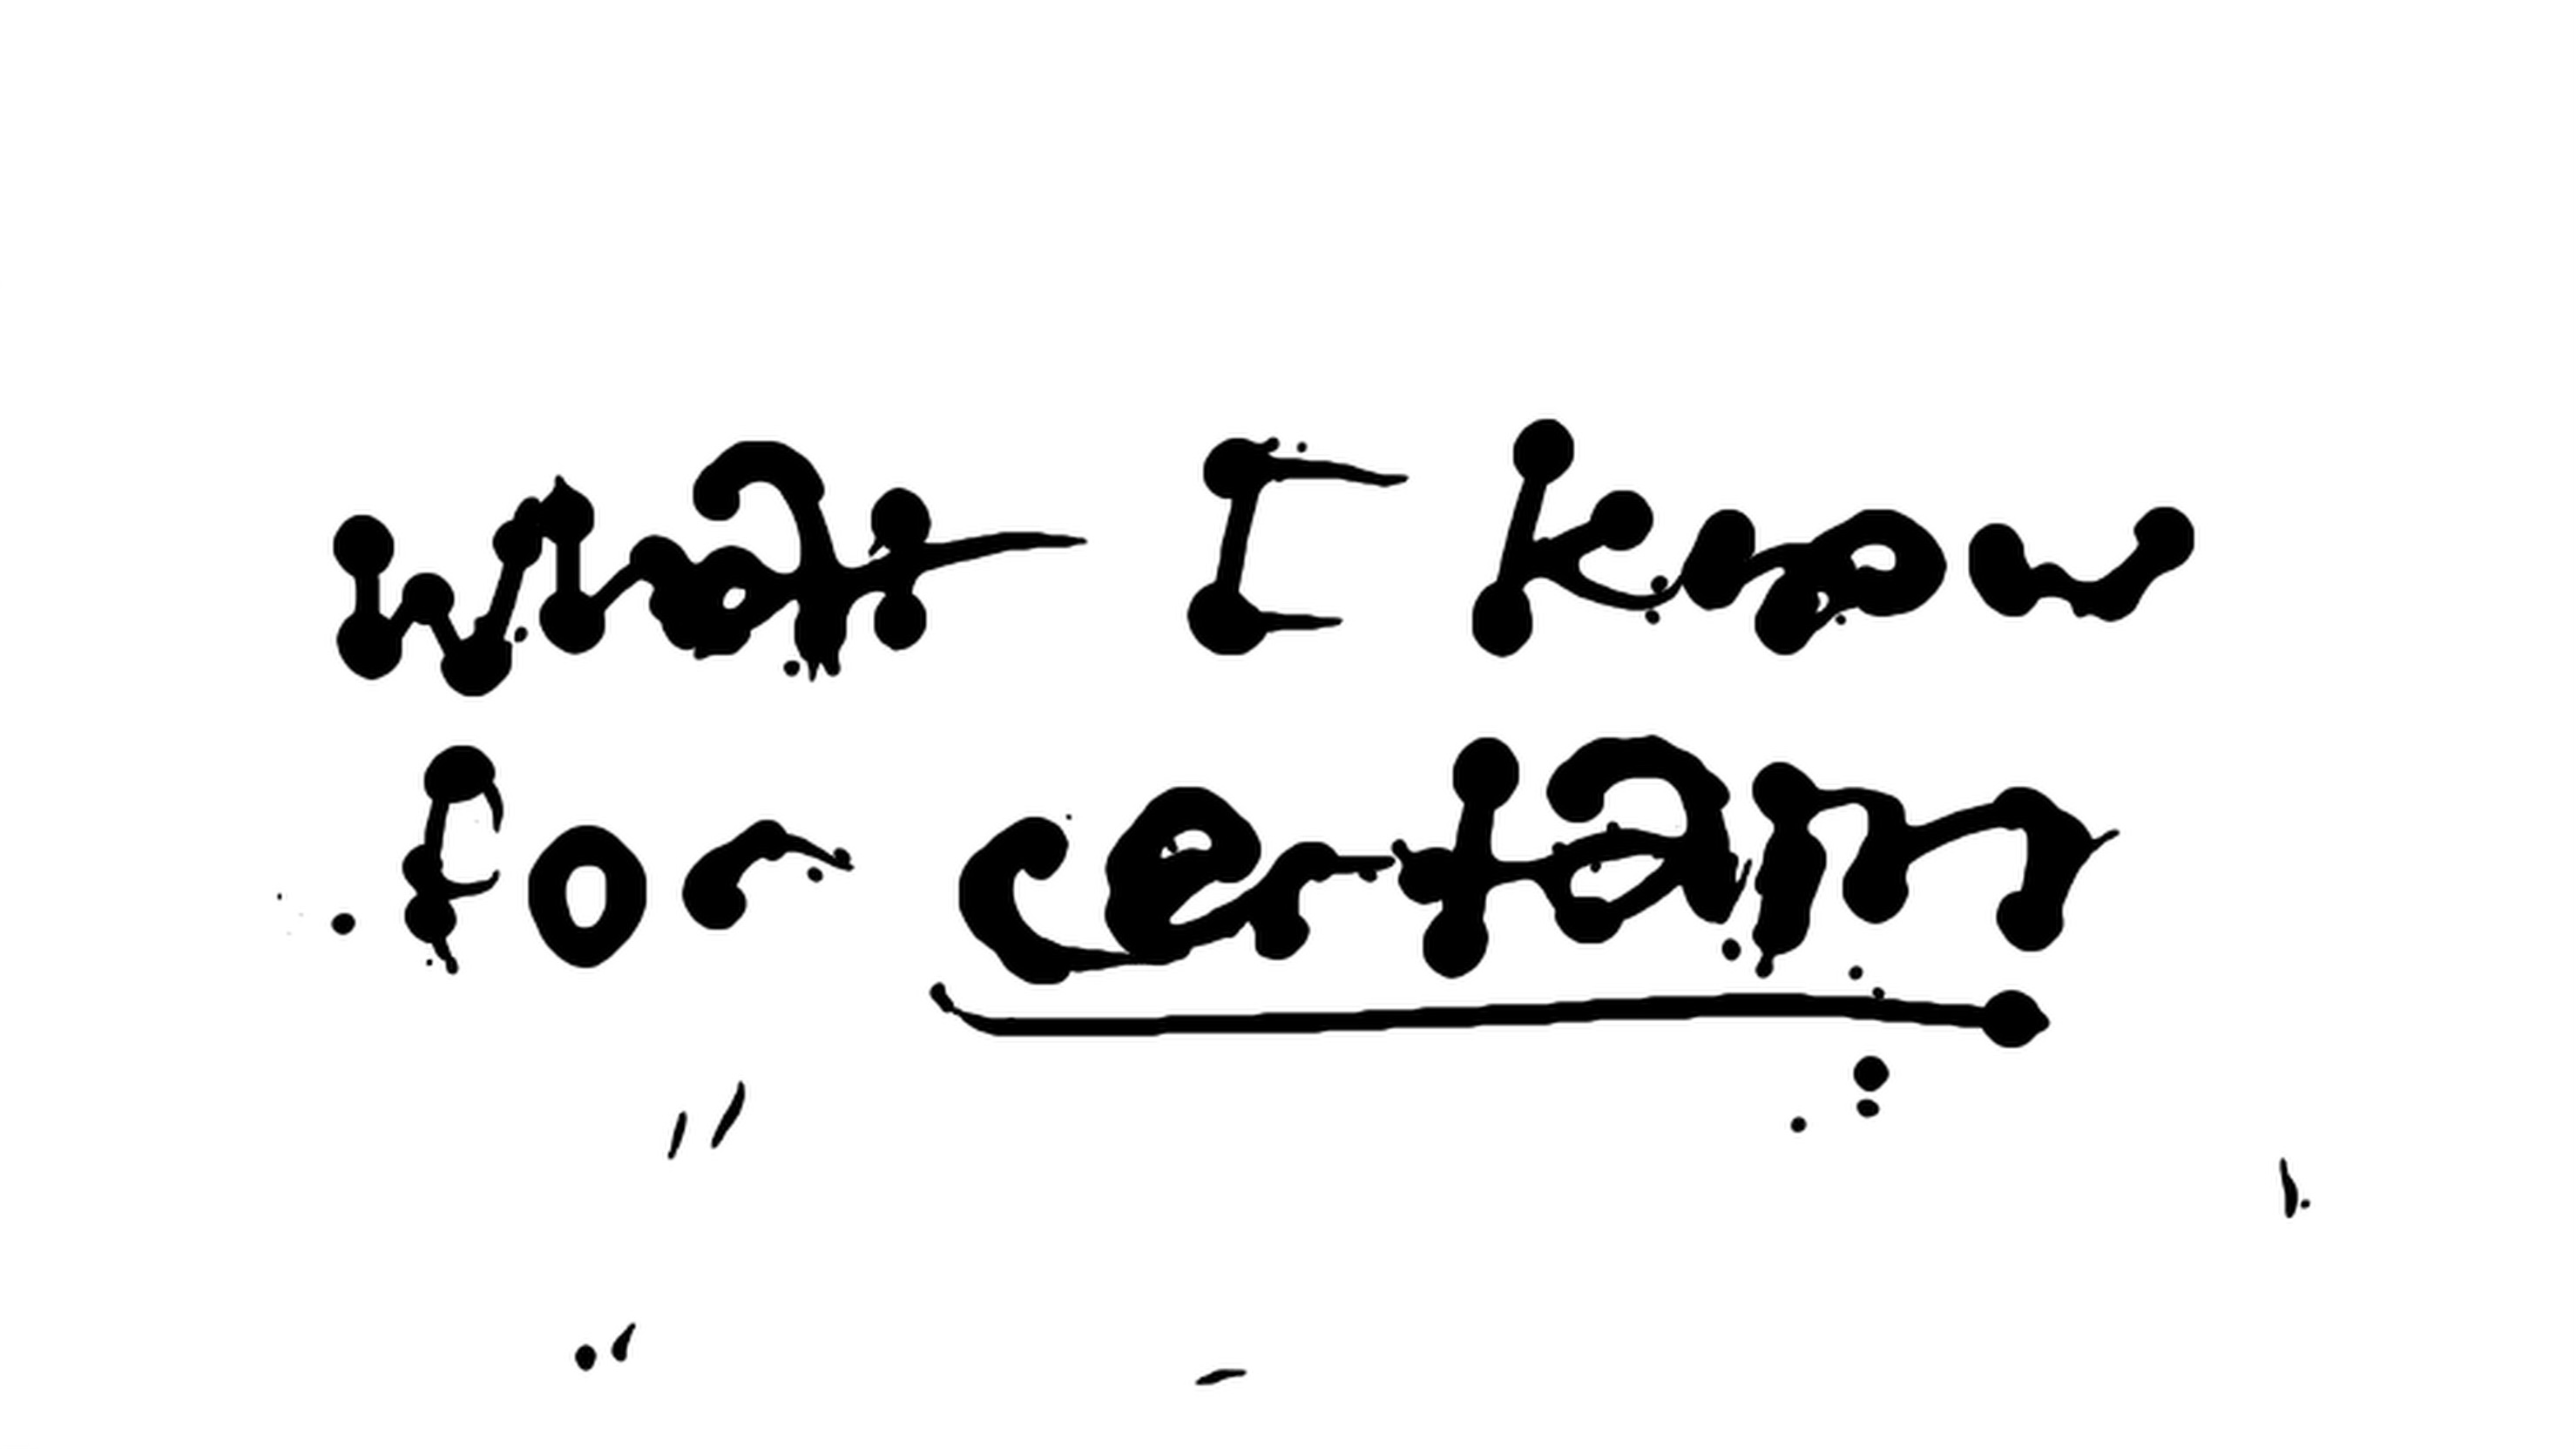 what I know
for certain